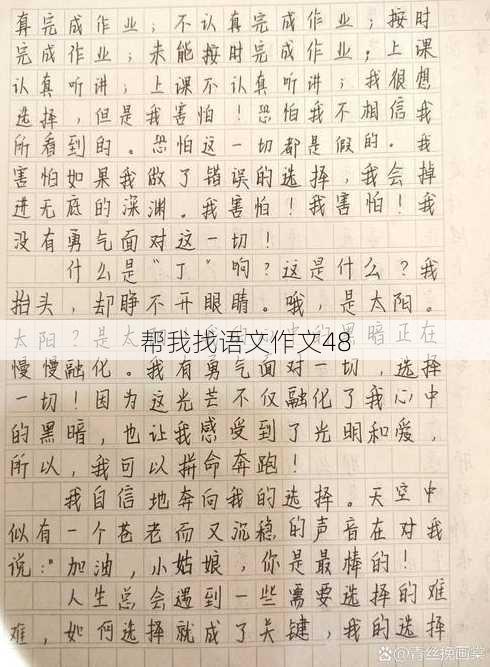 真完成作业，不认真完成作业；按时
完成作业；未能按时完成作业；上课
认真听讲；上课不认真听讲；我很想
选择，但是我害怕！恐怕我不相信我
所看到的。恐怕这一切都是假的。我
害怕如果我做了错误的选择，我会掉
进无底的深渊。我害怕！我害怕！我
没有勇气面对这一切！
什么是“丁”啊？这是什么？我
抬头，却睁不开眼睛。哦，是太阳。
太阳？是太阳 黑暗正在
帮我找语文作文48
慢慢融化。我有勇气面对一切，选择
一切！因为这光芒不仅融化了我心中
的黑暗，也让我感受到了光明和爱，
所以，我可以拼命奔跑！
我自信地奔向我的选择。天空中
似有一个苍老而又沉稳的声音在对我
说：“加油，小姑娘，你是最棒的！
人生总会遇到一些需要选择的难
难，如何选择就成了关键，我的选择
@青丝挽画棠